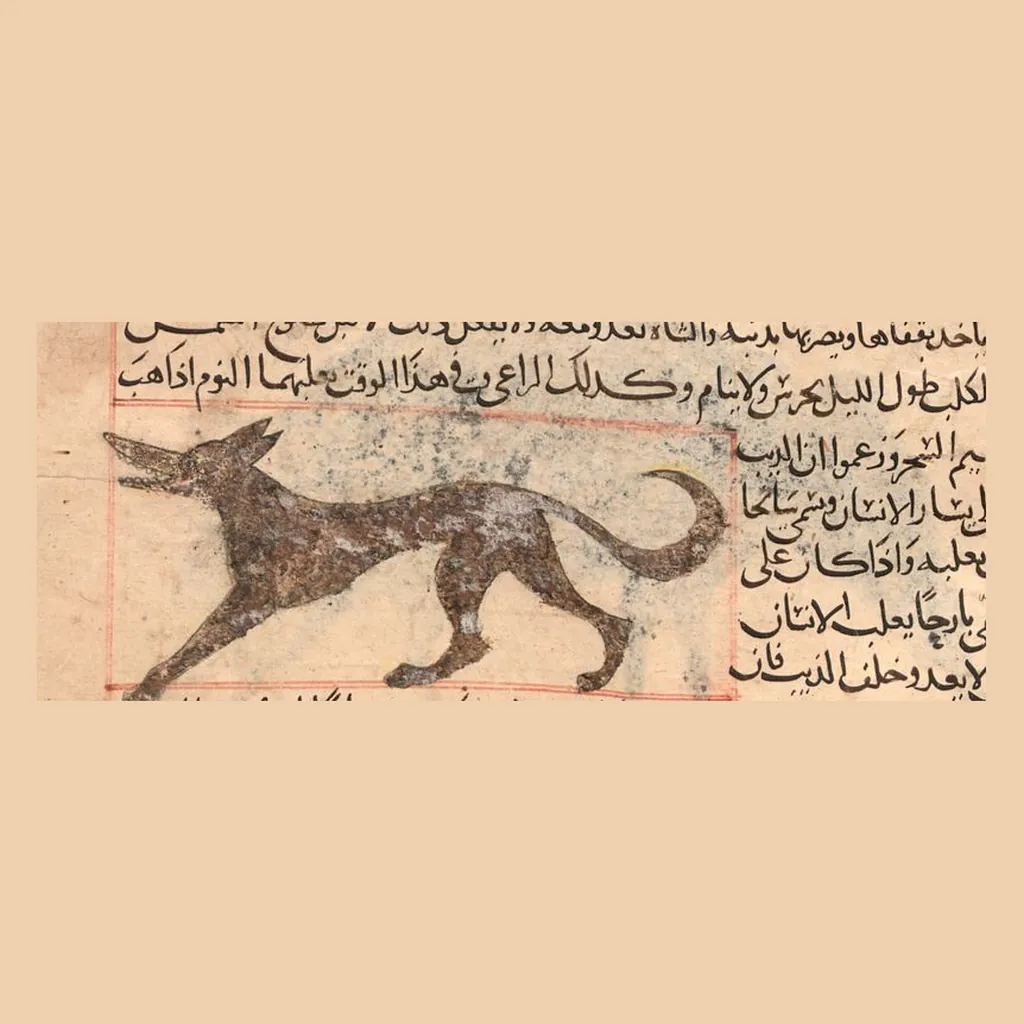 ياخذ بقفاها ويضربها بذنبه والشاة تعدو معه ولا يفعل ذلك الا قبل طلوع الشمس
لكلب طول الليل يحرس ولا ينام وكذلك الراعى وفى هذا الوقت يغلبهما النوم اذا هب
يم السحر وزعموا ان الذيب
يسار الانسان ويسمى سانحا
يغلبه واذا كان على
بارحا يغلب الانسان
لا يعدو خلف الذيب فان